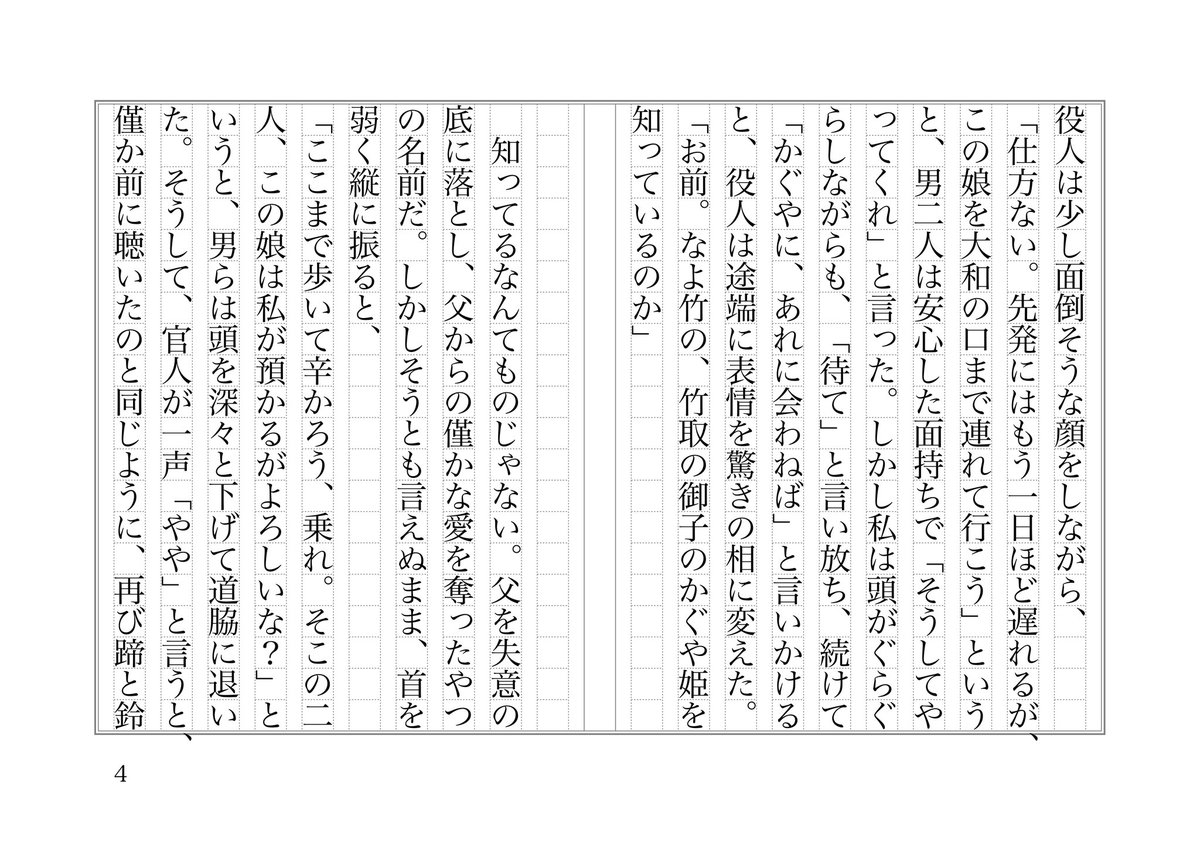 役人は少し面倒そうな顔をしながら、
「仕方ない。先発にはもう一日ほど遅れるが、
この娘を大和の口まで連れて行こう」という
と、男二人は安心した面持ちで「そうしてや
ってくれ」と言った。しかし私は頭がぐらぐ
らしながらも、「待て」と言い放ち、続けて
「かぐやに、あれに会わねば」と言いかける
と、役人は途端に表情を驚きの相に変えた。
「お前。なよ竹の、竹取の御子のかぐや姫を
知っているのか」
知ってるなんてものじゃない。父を失意の
底に落とし、父からの僅かな愛を奪ったやつ
の名前だ。しかしそうとも言えぬまま、首を
弱く縦に振ると、
「ここまで歩いて辛かろう、乗れ。そこの二
人、この娘は私が預かるがよろしいな？」と
いうと、男らは頭を深々と下げて道脇に退い
た。そうして、官人が一声「やや」と言うと、
僅か前に聴いたのと同じように、再び蹄と鈴
4